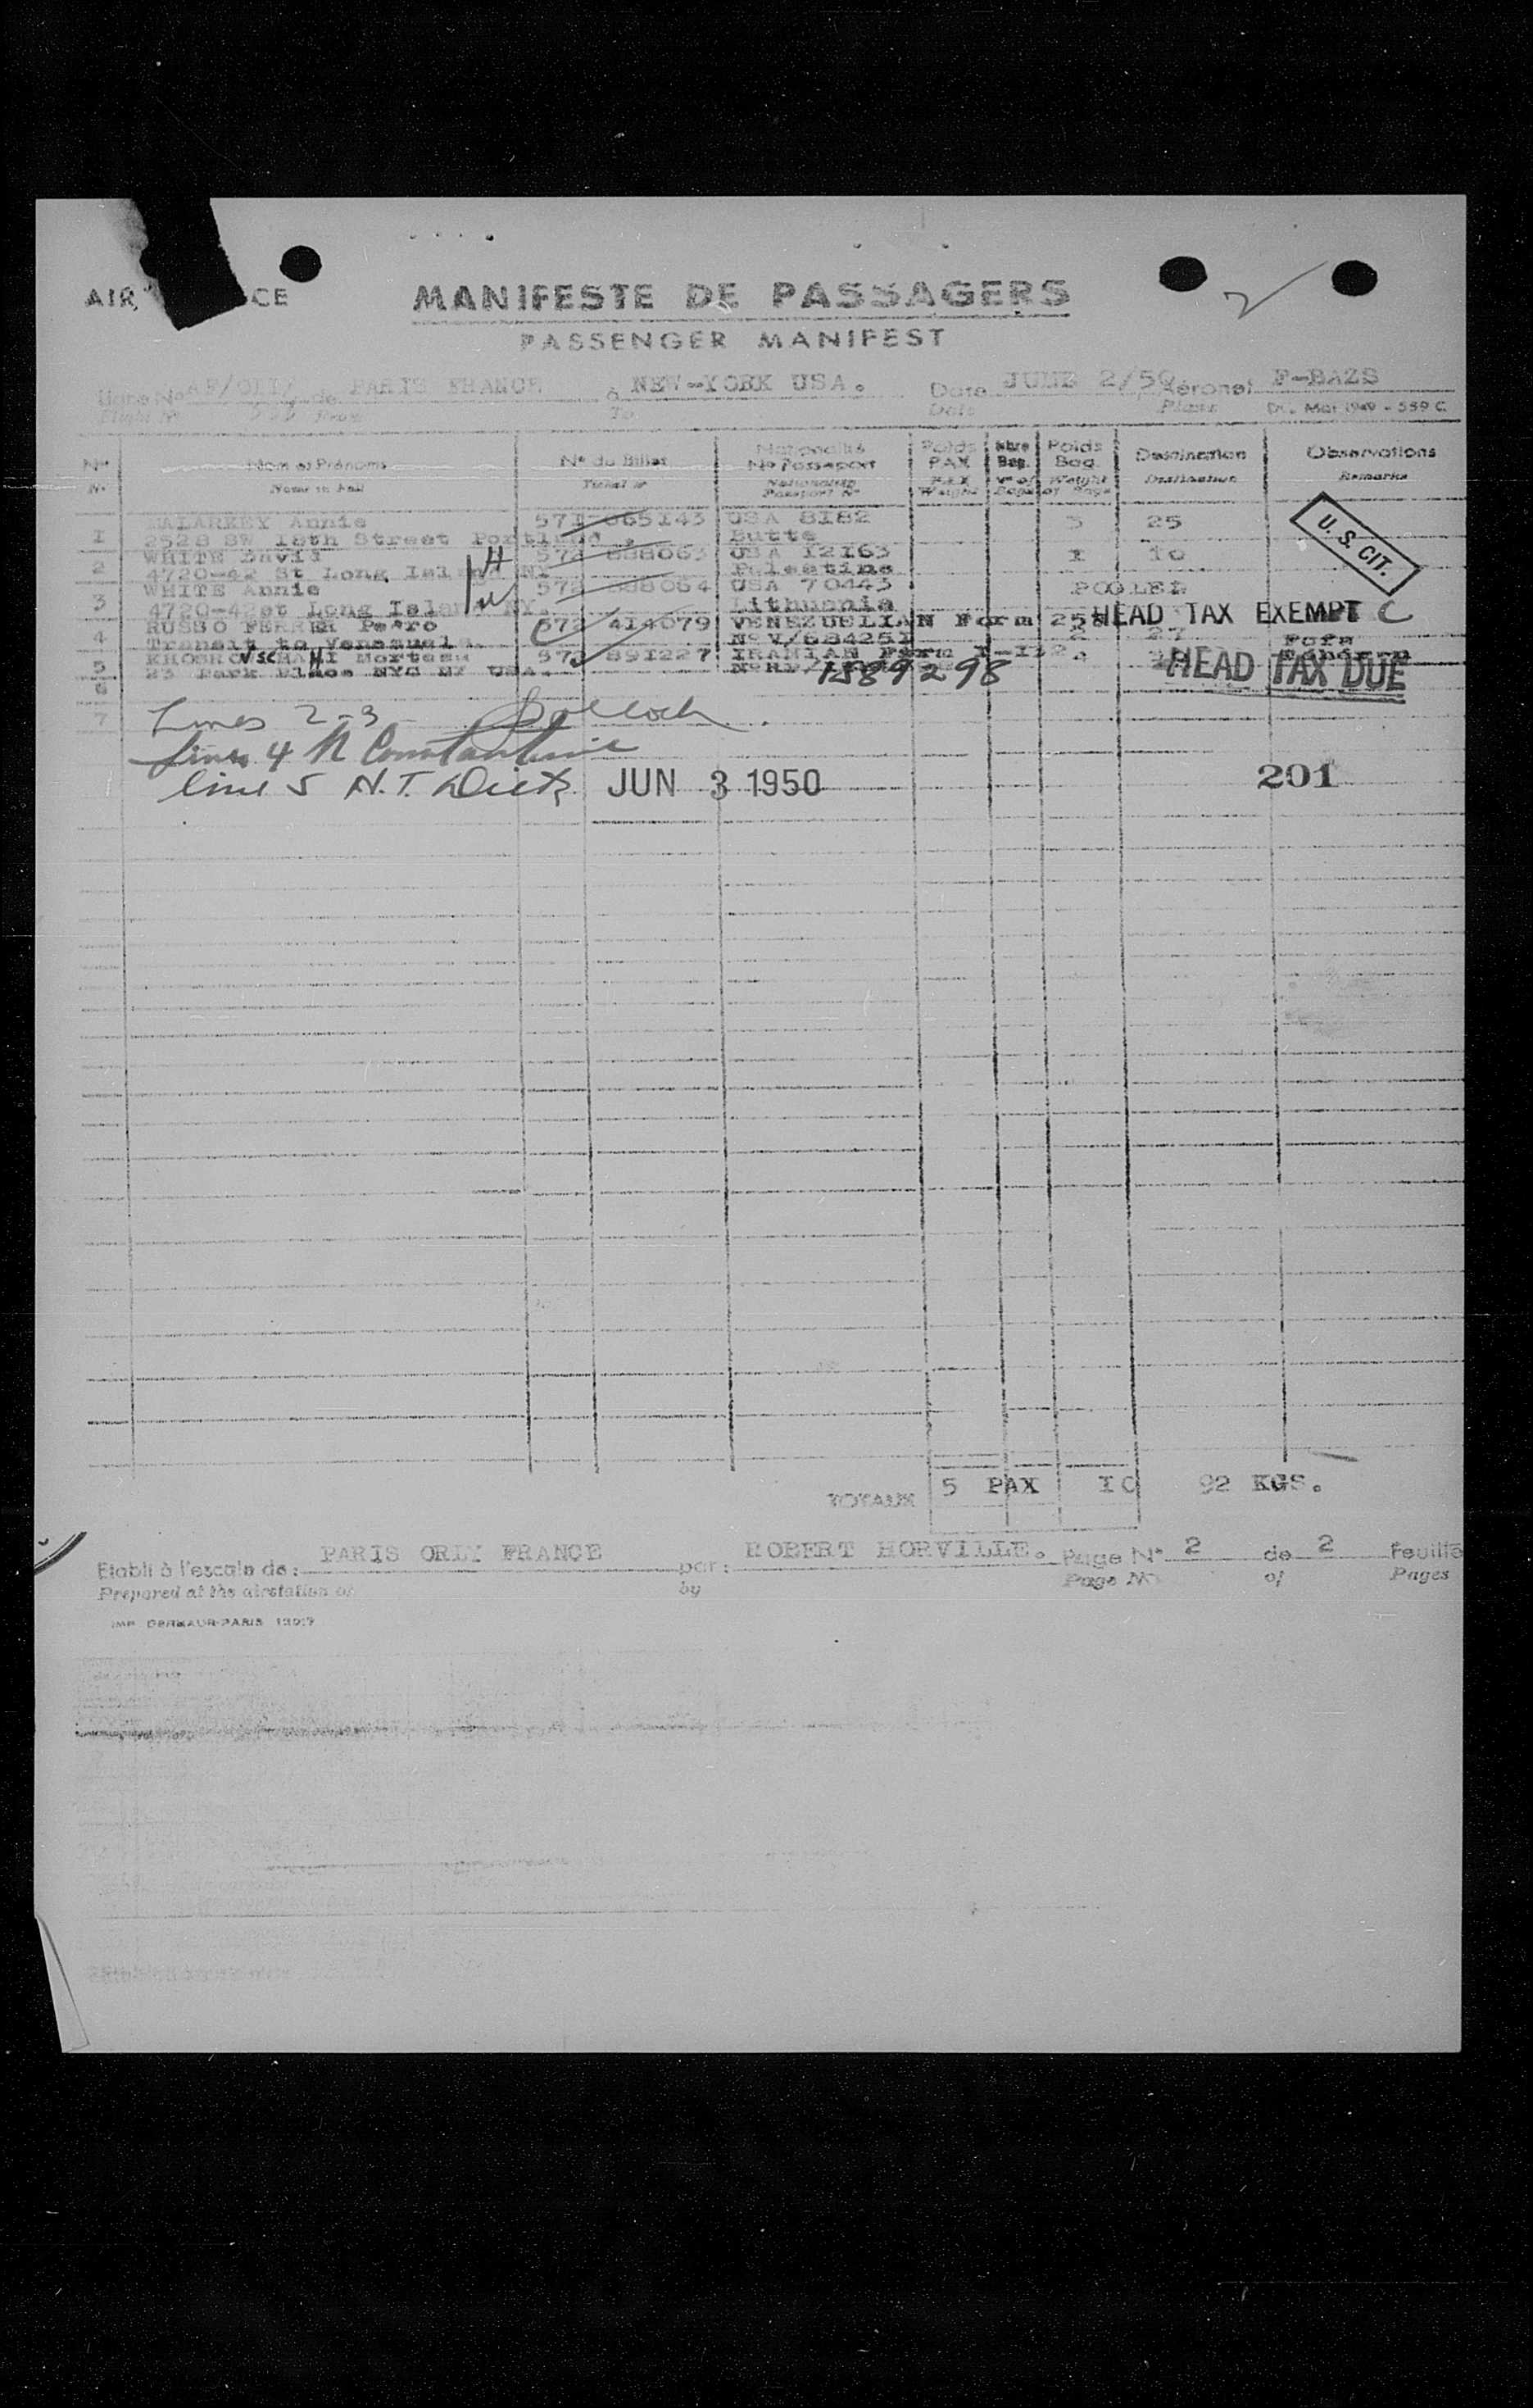 AIR CE
MANIFESTE DE PASSAGERS
PASSENGER MANIFEST
de PARIS FRANCE à NEW-YORK USA. Date JUNE 2/50 Aéronef F-BAZS
Flight N° From To Date Plane Mai 1949 - 559 C
N° Nom et Prénoms N° du Billet Nationalité N° Passeport Poids PAX Nbre Bag. Poids Bag. Destination Observations
N° Name in Full Ticket N° Nationality Passport N° PAX Weight N° of Bags Weight of Bags Destination Remarks
1 Annie 571-065143 USA 8182 3 25 U. S. CIT.
2528 SW 18th Street Portland, Butte
2 WHITE David 572 888063 USA 12163 1 10
4720-42 St Long Island NY Palestine
3 WHITE Annie 572 888064 USA 70443 POOLED
4720-42st Long Island NY. Lithuania
4 RUSSO FERRER Pedro 572 414079 VENEZUELIAN Form 258 HEAD TAX EXEMPT C
Transit to Venezuela. N° V/684251 2 27
5 572 891227 IRANIAN Form I-132
23 Park Place NYC NY USA. 1589298 HEAD TAX DUE
6
7 Lines 2-3 Pollock
Lines 4 N Constantine
line 5 N.T. Dietz JUN 3 1950 201
TOTAUX 5 PAX 10 92 KGS.
Etabli à l'escale de: PARIS ORLY FRANCE par: ROBERT HORVILLE. Page N° 2 de 2 Feuille
Prepared at the airstation of by Page N° of Pages
IMP. PARIS